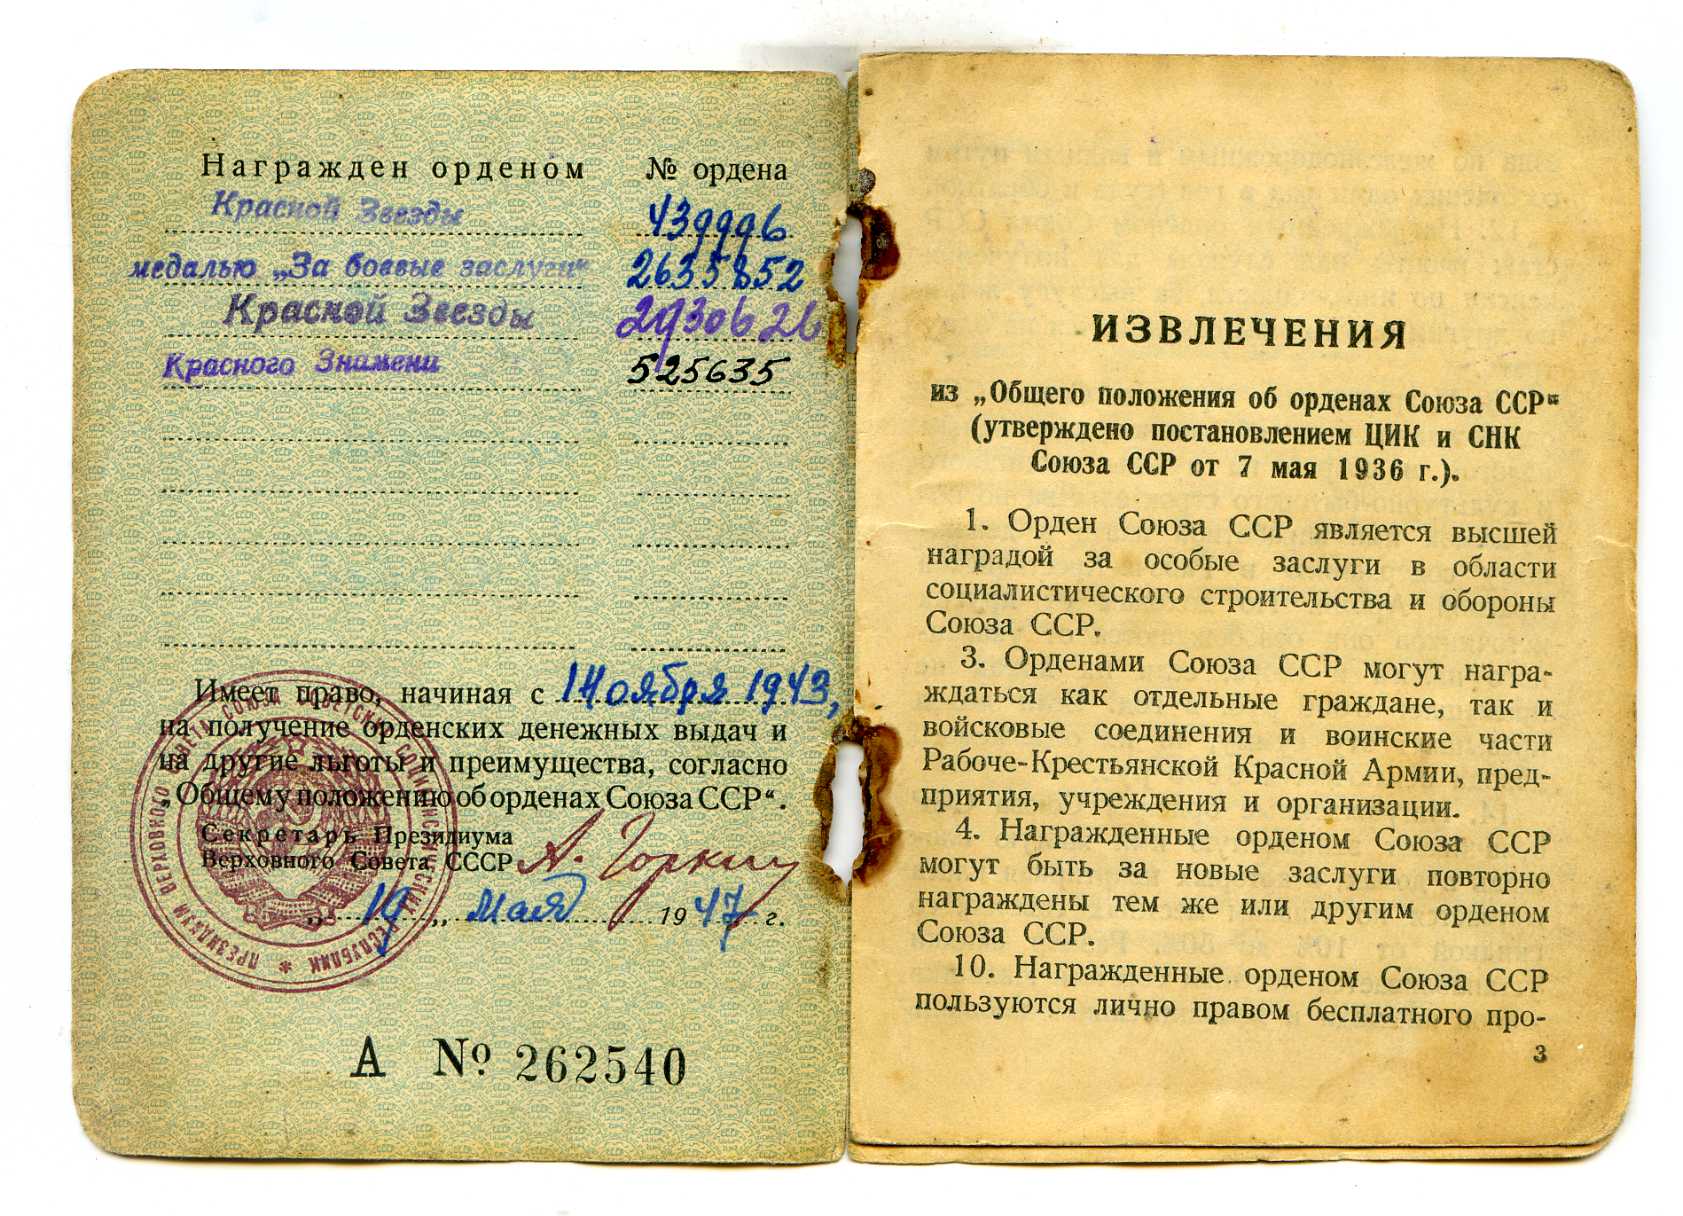 Награжден орденом № ордена
Красной Звезды 439996
медалью „За боевые заслуги“ 2635852
Красной Звезды 2930626
Красного Знамени 525635
Имеет право, начиная с 1 ноября 1943,
на получение орденских денежных выдач и
на другие льготы и преимущества, согласно
„Общему положению об орденах Союза ССР“.
Секретарь Президиума
Верховного Совета СССР А. Горкин
„ 19 „ мая 1947 г.
ПРЕЗИДИУМ ВЕРХОВНОГО СОВЕТА СОЮЗА СОВЕТСКИХ СОЦИАЛИСТИЧЕСКИХ РЕСПУБЛИК *
А № 262540
ИЗВЛЕЧЕНИЯ
из „Общего положения об орденах Союза ССР“
(утверждено постановлением ЦИК и СНК
Союза ССР от 7 мая 1936 г.).
1. Орден Союза ССР является высшей
наградой за особые заслуги в области
социалистического строительства и обороны
Союза ССР.
3. Орденами Союза ССР могут награ-
ждаться как отдельные граждане, так и
войсковые соединения и воинские части
Рабоче-Крестьянской Красной Армии, пред-
приятия, учреждения и организации.
4. Награжденные орденом Союза ССР
могут быть за новые заслуги повторно
награждены тем же или другим орденом
Союза ССР.
10. Награжденные орденом Союза ССР
пользуются лично правом бесплатного про-
3